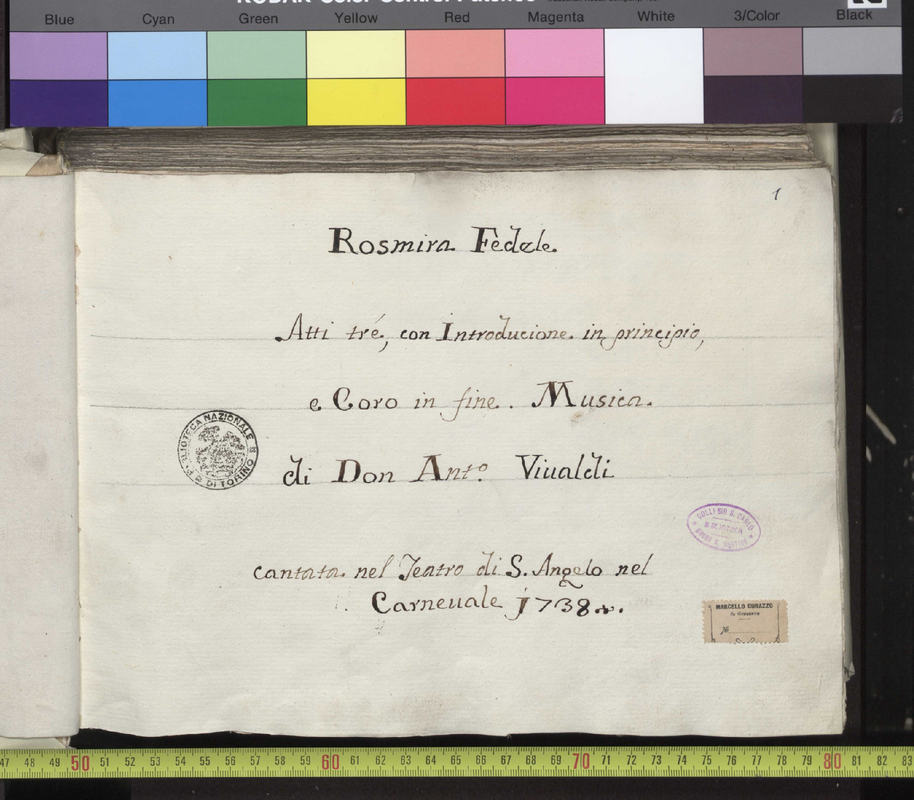 Blue Cyan Green Yellow Red Magenta White 3/Color Black
1
Rosmira Fedele.
Atti tré, con Introducione in principio,
e Coro in fine. Musica.
di Don Antº Viualdi
cantata nel Teatro di S. Angelo nel
Carneuale j738
BIBLIOTECA NAZIONALE
DI TORINO
MARCELLO DURAZZO
di Giuseppe
№
47 48 49 50 51 52 53 54 55 56 57 58 59 60 61 62 63 64 65 66 67 68 69 70 71 72 73 74 75 76 77 78 79 80 81 82 83